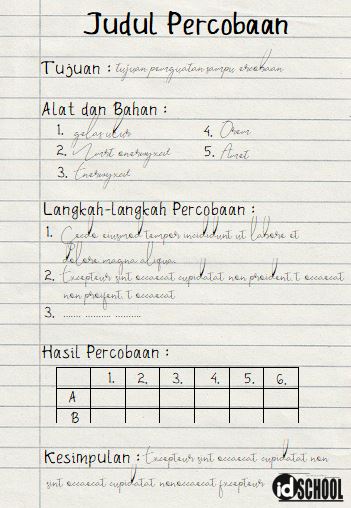 Judul Percobaan
Tujuan : tujuan percobaan
Alat dan Bahan :
1. gelas ukur
2.
3.
4.
5. Amet
Langkah-langkah Percobaan :
1. eiusmod tempor incididunt ut labore et
dolore magna aliqua.
2. Excepteur sint occaecat cupidatat non proident, t occaecat
non proident, t occaecat
3. ....... .......... ..........
Hasil Percobaan :
1. 2. 3. 4. 5. 6.
A
B
Kesimpulan : Excepteur sint occaecat cupidatat non
sint occaecat cupidatat nonoccaecat
idSCHOOL